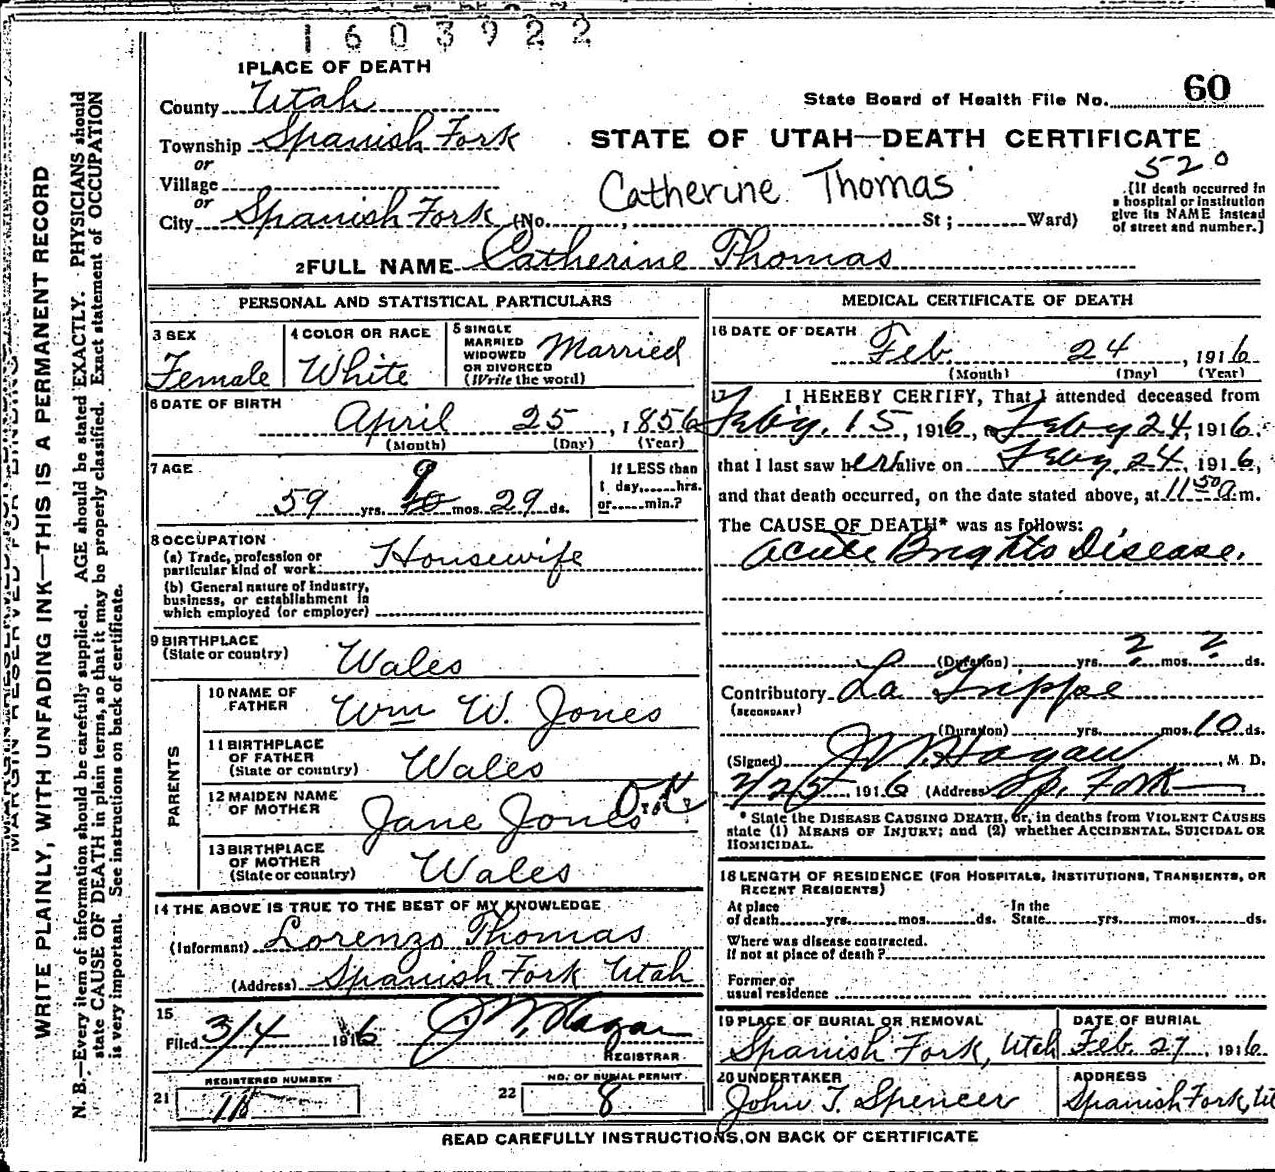 1603922
1 PLACE OF DEATH
County Utah
State Board of Health File No. 60
Township Spanish Fork
or
STATE OF UTAH—DEATH CERTIFICATE
Village
or
Catherine Thomas
520
City Spanish Fork (No. , St ; Ward)
(If death occurred in
a hospital or institution
give its NAME instead
of street and number.)
2 FULL NAME Catherine Thomas
PERSONAL AND STATISTICAL PARTICULARS
3 SEX
Female
4 COLOR OR RACE
White
5 SINGLE
MARRIED
WIDOWED
OR DIVORCED
(Write the word)
Married
6 DATE OF BIRTH
April 25, 1856
(Month) (Day) (Year)
7 AGE
59 yrs. 9 10 mos. 29 ds.
If LESS than
1 day, hrs.
or min.?
8 OCCUPATION
(a) Trade, profession or
particular kind of work Housewife
(b) General nature of industry,
business, or establishment in
which employed (or employer)
9 BIRTHPLACE
(State or country) Wales
PARENTS
10 NAME OF
FATHER Wm W. Jones
11 BIRTHPLACE
OF FATHER
(State or country) Wales
12 MAIDEN NAME
OF MOTHER Jane Jones
13 BIRTHPLACE
OF MOTHER
(State or country) Wales
14 THE ABOVE IS TRUE TO THE BEST OF MY KNOWLEDGE
(Informant) Lorenzo Thomas
(Address) Spanish Fork Utah
15
Filed 3/4 1916 J W Hagan
REGISTRAR
REGISTERED NUMBER
21
NO. OF BURIAL PERMIT.
22 8
MEDICAL CERTIFICATE OF DEATH
16 DATE OF DEATH
Feb 24, 1916
(Month) (Day) (Year)
17 I HEREBY CERTIFY, That I attended deceased from
Feby. 15, 1916, Feby 24, 1916.
that I last saw her alive on Feby 24, 1916,
and that death occurred, on the date stated above, at 11 50 a m.
The CAUSE OF DEATH* was as follows:
Acute Brights Disease.
(Duration) yrs. ? mos. ? ds.
Contributory La Grippe
(SECONDARY)
(Duration) yrs. mos. 10 ds.
(Signed) J W Hagan, M. D.
2/25 1916 (Address Sp. Fork
* State the DISEASE CAUSING DEATH, or, in deaths from VIOLENT CAUSES
state (1) MEANS OF INJURY; and (2) whether ACCIDENTAL, SUICIDAL OR
HOMICIDAL.
18 LENGTH OF RESIDENCE (FOR HOSPITALS, INSTITUTIONS, TRANSIENTS, OR
RECENT RESIDENTS)
At place In the
of death yrs. mos. ds. State yrs. mos. ds.
Where was disease contracted.
If not at place of death?
Former or
usual residence
19 PLACE OF BURIAL OR REMOVAL
Spanish Fork, Utah
DATE OF BURIAL
Feb. 27, 1916
20 UNDERTAKER
John T. Spencer
ADDRESS
Spanish Fork, Ut
READ CAREFULLY INSTRUCTIONS, ON BACK OF CERTIFICATE
MARGIN RESERVED FOR BINDING
WRITE PLAINLY, WITH UNFADING INK—THIS IS A PERMANENT RECORD
N. B.—Every item of information should be carefully supplied. AGE should be stated EXACTLY. PHYSICIANS should
state CAUSE OF DEATH in plain terms, so that it may be properly classified. Exact statement of OCCUPATION
is very important. See instructions on back of certificate.